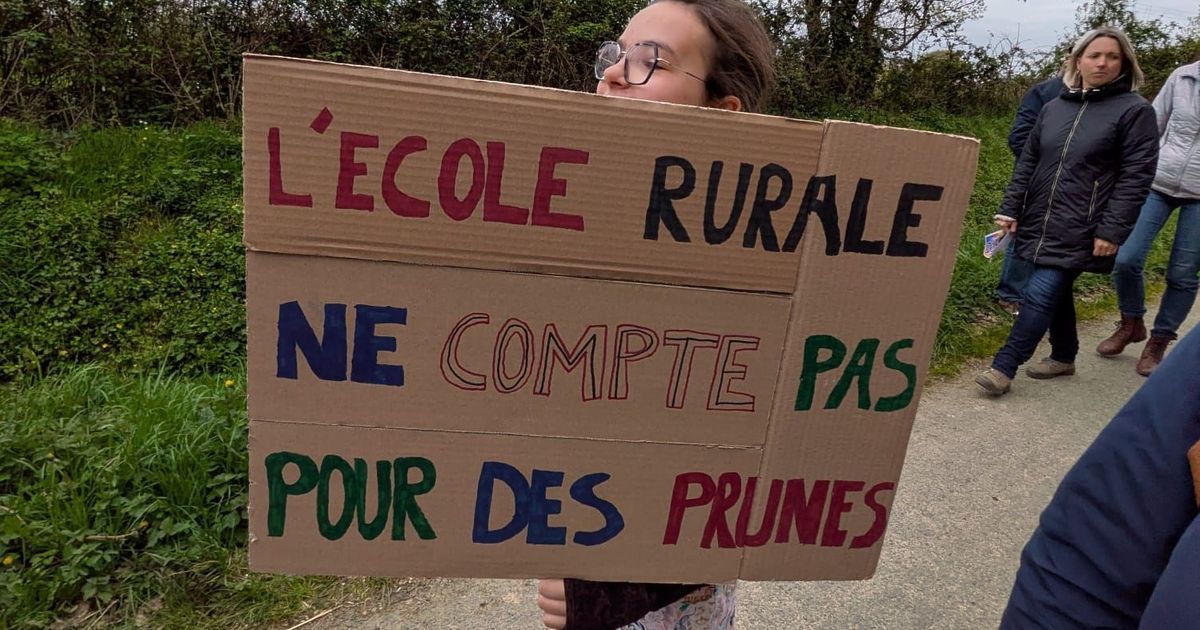 L'ÉCOLE RURALE
NE COMPTE PAS
POUR DES PRUNES